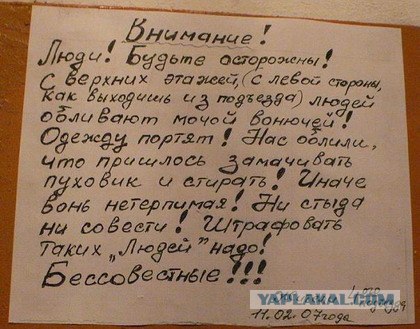 Внимание!
Люди! Будьте осторожны!
С верхних этажей, (с левой стороны,
как выходишь из подъезда) людей
обливают мочой вонючей!
Одежду портят! Нас облили,
что пришлось замачивать
пуховик и стирать! Иначе
вонь нетерпимая! Ни стыда
ни совести! Штрафовать
таких „Людей" надо!
Бессовестные!!!
YAPLAKAL.COM
11.02.07года